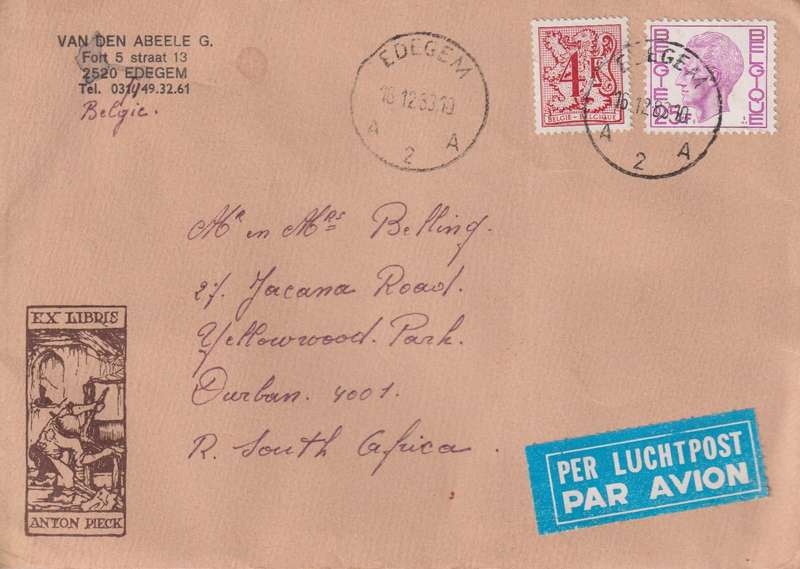 VAN DEN ABEELE G.
Fort 5 straat 13
2520 EDEGEM
Tel. 031/49.32.61
Belgie.
EDEGEM
16.12.83.10
A 2 A
4F
BELGIE-BELGIQUE
BELGIE
BELGIQUE
25F
EDEGEM
16.12.83.10
A 2 A
Mr en Mrs Belling.
27. Jacana Road.
Yellowwood. Park.
Durban. 4001.
R. South Africa.
EX LIBRIS
ANTON PIECK
PER LUCHTPOST
PAR AVION